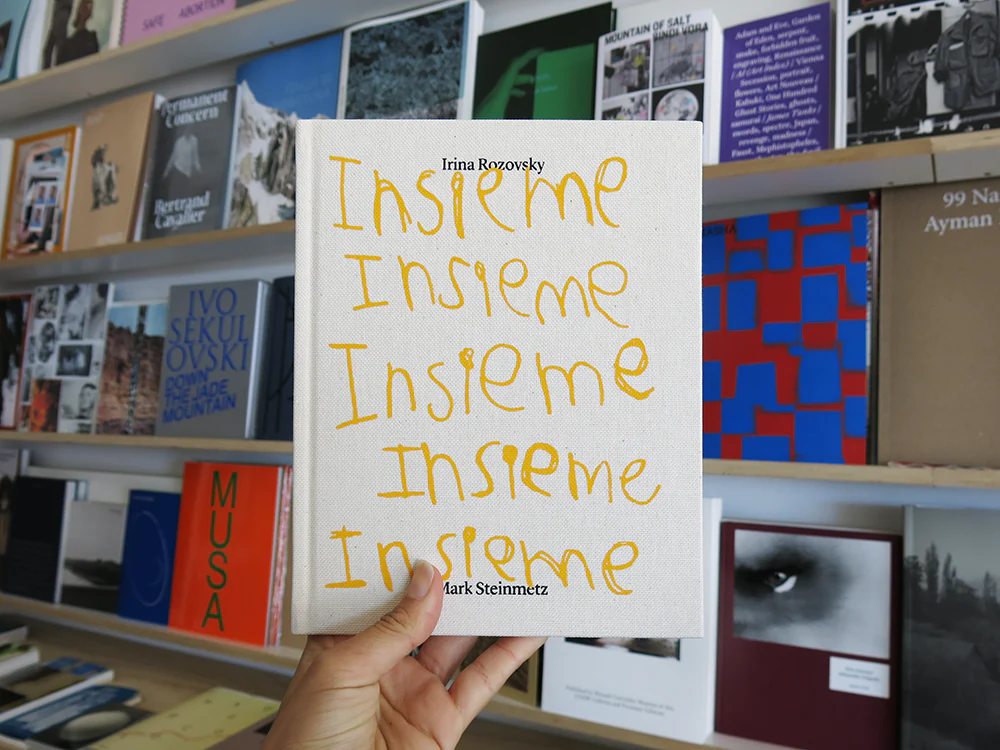 SAFE ABORTION
MOUNTAIN OF SALT
BINDI VORA
Adam and Eve, Garden
of Eden, serpent,
snake, forbidden fruit,
engraving, Renaissance
/ AI (Art Index) / Vienna
Secession, portrait,
flowers, Art Nouveau /
Kabuki, One Hundred
Ghost Stories, ghosts,
samurai / James Tunks /
swords, spectre, Japan,
revenge, madness /
Faust, Mephistopheles,
Permanent
Concern
Bertrand
Cavalier
Irina Rozovsky
Insieme
Insieme
Insieme
Insieme
Insieme
Mark Steinmetz
99 Na
Ayman
IVO
SEKUL
OVSKI
DOWN
THE JADE
MOUNTAIN
MUSA